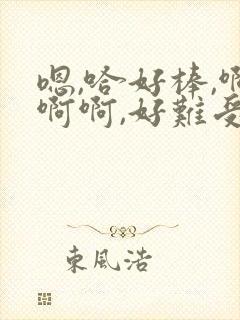 嗯,哈好棒,啊
啊啊,好難受
東風浩